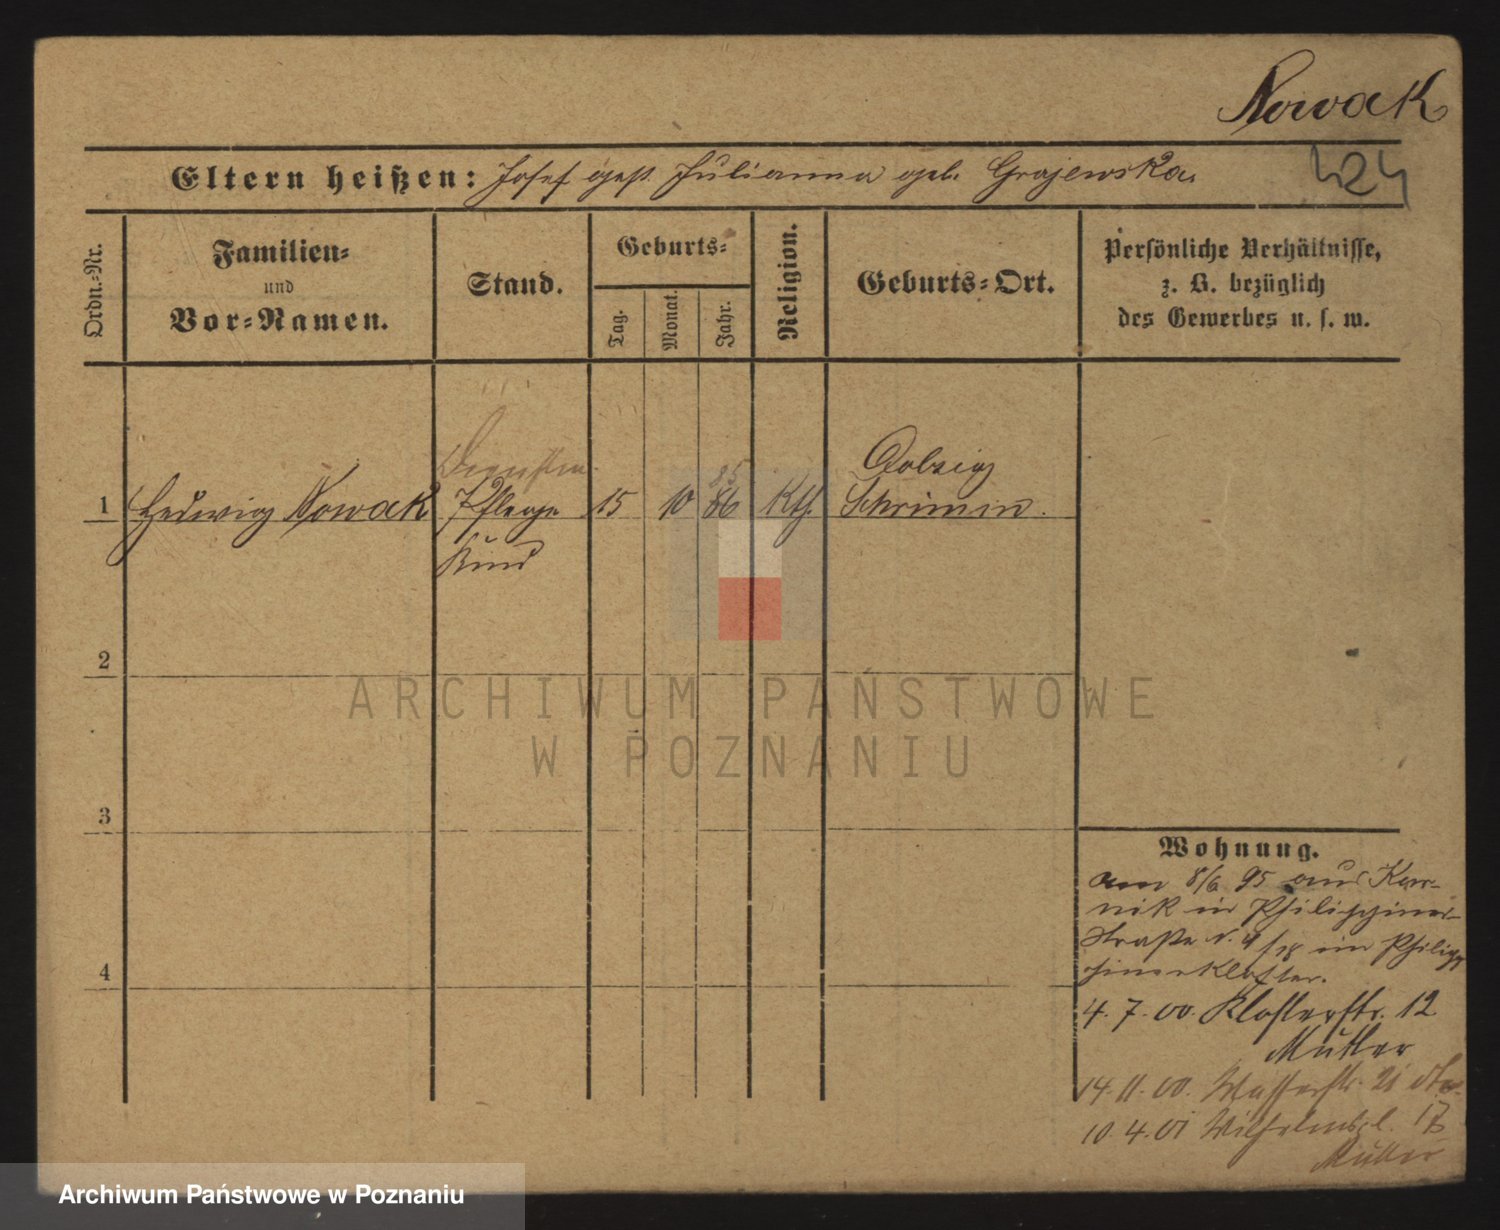 Nowak
424
Eltern heißen: Josef gest. Julianna geb. Grajewska
Ordn.-Nr.
Familien-
und
Vor-Namen.
Stand.
Geburts-
Tag.
Monat.
Jahr.
Religion.
Geburts-Ort.
Persönliche Verhältnisse,
z. B. bezüglich
des Gewerbes u. s. w.
85
1 Hedwig Nowak Pflege 15 10 86 Kth. Schrimm.
Kind
2
3
4
Wohnung.
am 8/6 95 aus Kur-
nik in Philippiner-
straße N. 4/78 im Philip-
pinerkloster.
4. 7. 00. Klosterstr. 12
Mutter
14. 11. 00. Wasserstr. 21
10. 4. 01 Wilhelmspl. 17
Mutter
ARCHIWUM PAŃSTWOWE
W POZNANIU
Archiwum Państwowe w Poznaniu